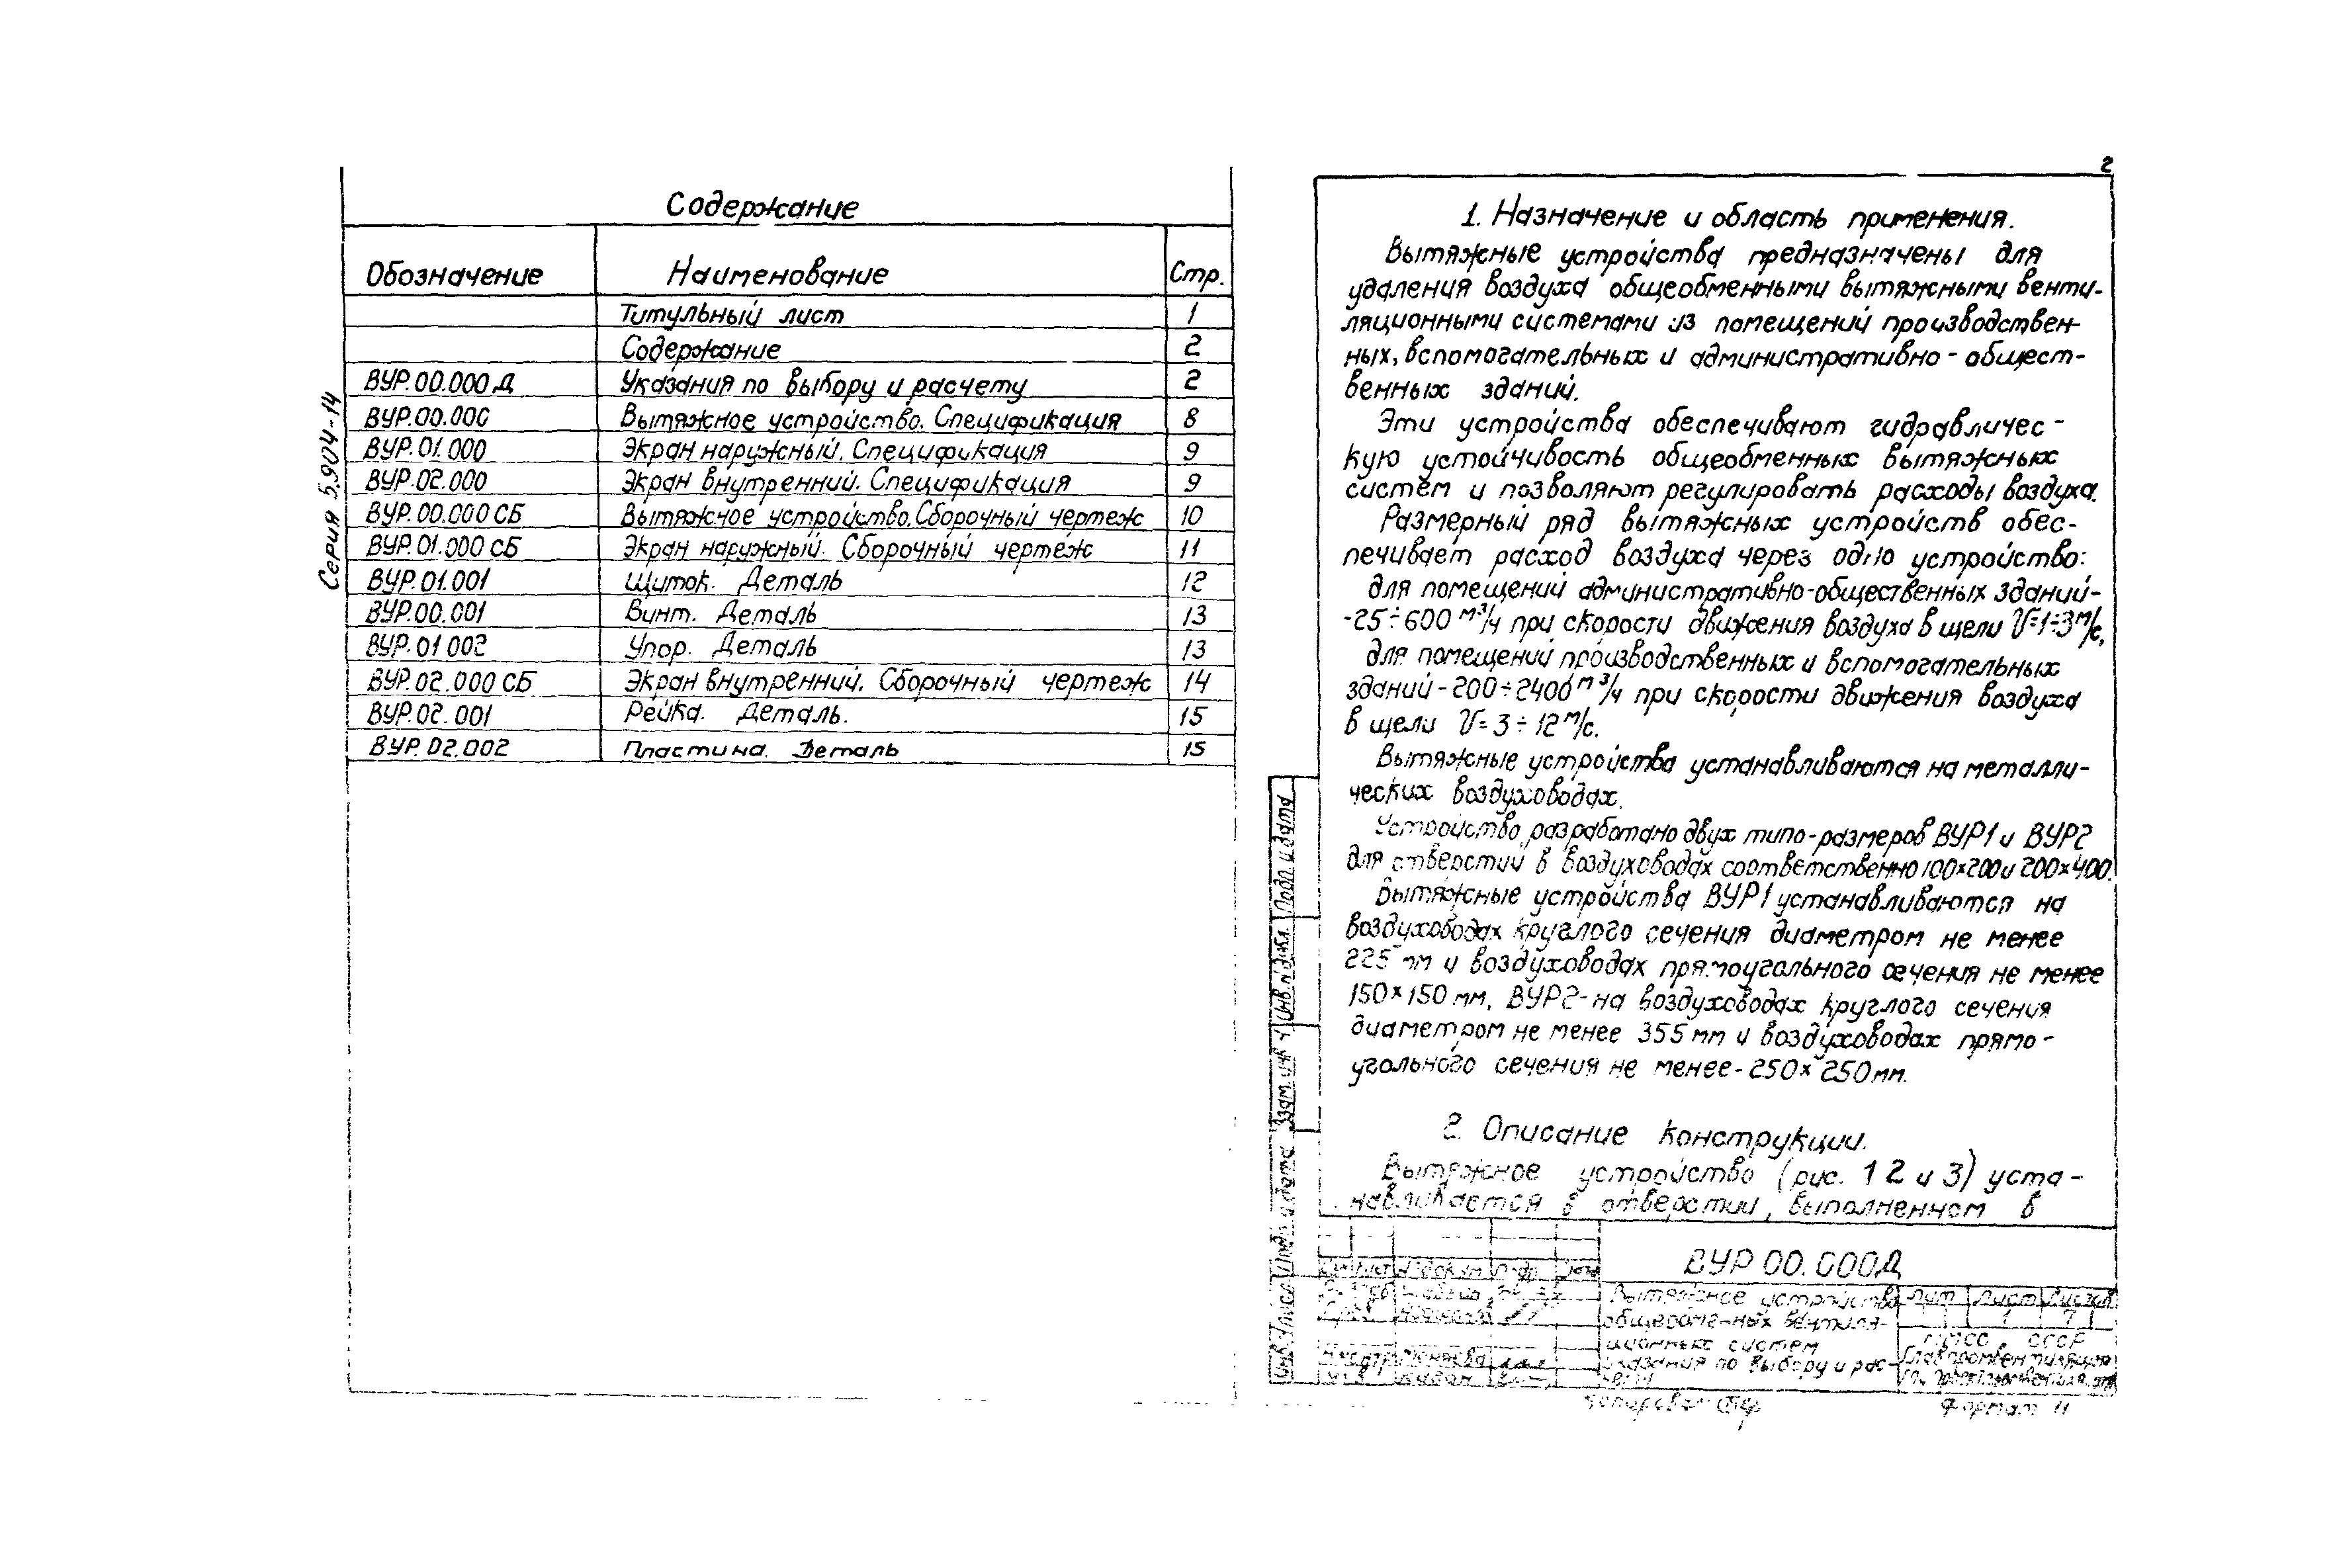 Серия 5.904-14
Содержание
Обозначение Наименование Стр.
Титульный лист 1
Содержание 2
ВУР.00.000 Д Указания по выбору и расчету 2
ВУР.00.000 Вытяжное устройство. Спецификация 8
ВУР.01.000 Экран наружный. Спецификация 9
ВУР.02.000 Экран внутренний. Спецификация 9
ВУР.00.000 СБ Вытяжное устройство. Сборочный чертеж 10
ВУР.01.000 СБ Экран наружный. Сборочный чертеж 11
ВУР.01.001 Щиток. Деталь 12
ВУР.00.001 Винт. Деталь 13
ВУР.01 002 Упор. Деталь 13
ВУР.02.000 СБ Экран внутренний. Сборочный чертеж 14
ВУР.02.001 Рейка. Деталь. 15
ВУР.02.002 Пластина. Деталь 15
2
1. Назначение и область применения.
Вытяжные устройства предназначены для
удаления воздуха общеобменными вытяжными венти-
ляционными системами из помещений производствен-
ных, вспомогательных и административно-общест-
венных зданий.
Эти устройства обеспечивают гидравличес-
кую устойчивость общеобменных вытяжных
систем и позволяют регулировать расходы воздуха.
Размерный ряд вытяжных устройств обес-
печивает расход воздуха через одно устройство:
для помещений административно-общественных зданий-
-25÷600 м³/ч при скорости движения воздуха в щели V=1÷3 м/с,
для помещений производственных и вспомогательных
зданий-200÷2400 м³/ч при скорости движения воздуха
в щели V=3÷12 м/с.
Вытяжные устройства устанавливаются на металли-
ческих воздуховодах.
Устройство разработано двух типо-размеров ВУР1 и ВУР2
для отверстий в воздуховодах соответственно 100×200 и 200×400.
Вытяжные устройства ВУР1 устанавливаются на
воздуховодах круглого сечения диаметром не менее
225 мм и воздуховодах прямоугольного сечения не менее
150×150 мм, ВУР2-на воздуховодах круглого сечения
диаметром не менее 355 мм и воздуховодах прямо-
угольного сечения не менее-250×250 мм.
2. Описание конструкции.
Вытяжное устройство (рис. 1 2 и 3) уста-
навливается в отверстии, выполненном в
Подп. и дата
Инв.№ дубл.
Взам. инв.
Подп. и дата
ВУР 00.000Д
Вытяжное устройство
общеобменных вентиля-
ционных систем
Указания по выбору и рас-
чету
Лит Лист Листов
1 7
СССР
Главпромвентиляция
Формат 11